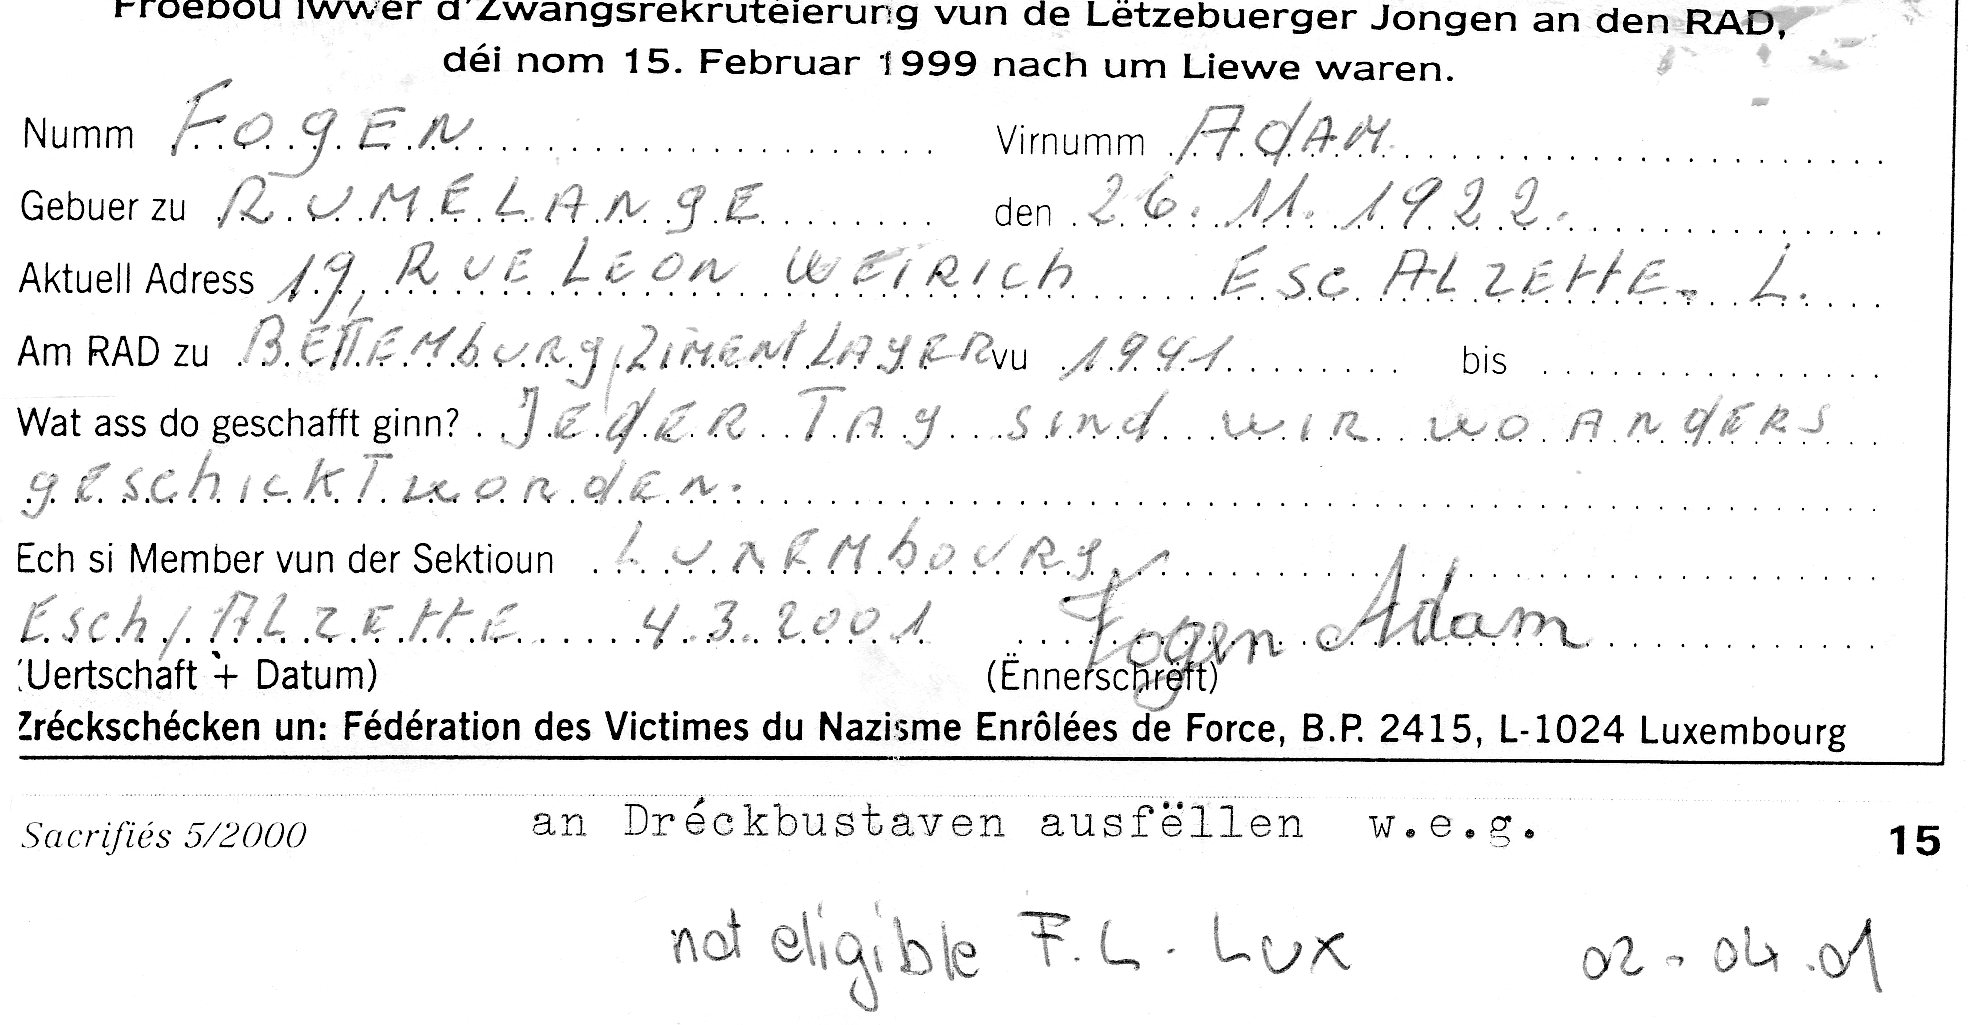 Froebou iwwer d'Zwangsrekrutéierung vun de Lëtzebuerger Jongen an den RAD,
déi nom 15. Februar 1999 nach um Liewe waren.
Numm FOgEN Virnumm AdAM
Gebuer zu RUMELANgE den 26.11.1922.
Aktuell Adress 19, RUE LEON WEIRICh ESC ALZEttE. L.
Am RAD zu BETTEMbURg, ZIMENt LAgER vu 1941 bis
Wat ass do geschafft ginn? JEdER TAg sind wIR wo ANdERS
gESchickT wordEn.
Ech si Member vun der Sektioun LUXEMbOURg
Esch/ALZEttE 4.3.2001 Fogen Adam
(Uertschaft + Datum) (Ënnerschrëft)
Zréckschécken un: Fédération des Victimes du Nazisme Enrôlées de Force, B.P. 2415, L-1024 Luxembourg
Sacrifiés 5/2000 an Dréckbustaven ausfëllen w.e.g. 15
not eligible F.L. Lux 02.04.01